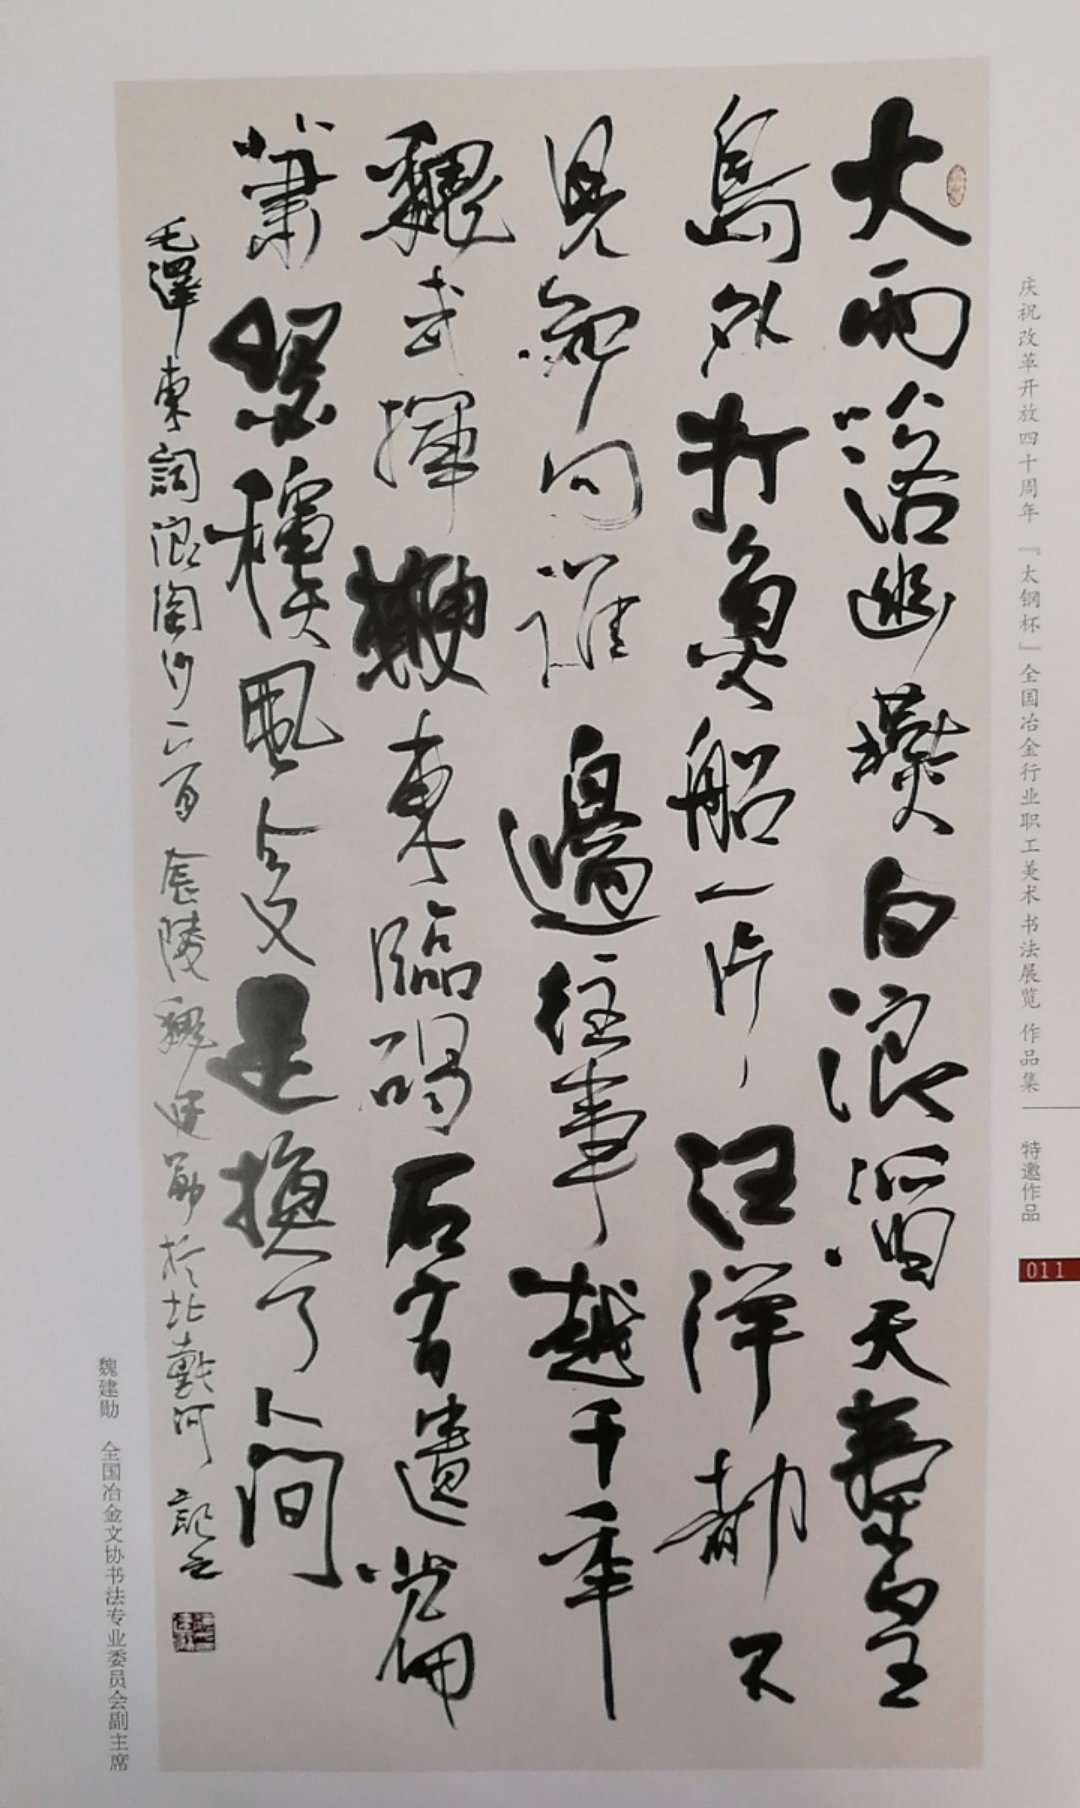 庆祝改革开放四十周年 『太钢杯』全国冶金行业职工美术 书法展览 作品集
特邀作品
011
大雨落幽燕白浪滔天秦皇
島外打魚船一片汪洋都不
見知向誰邊往事越千年
魏武揮鞭東臨碣石有遺篇
蕭瑟秋風今又是換了人間
毛澤東詞浪淘沙一首 金陵魏建勛於北戴河 記之
魏建勋 全国冶金文协书法专业委员会副主席